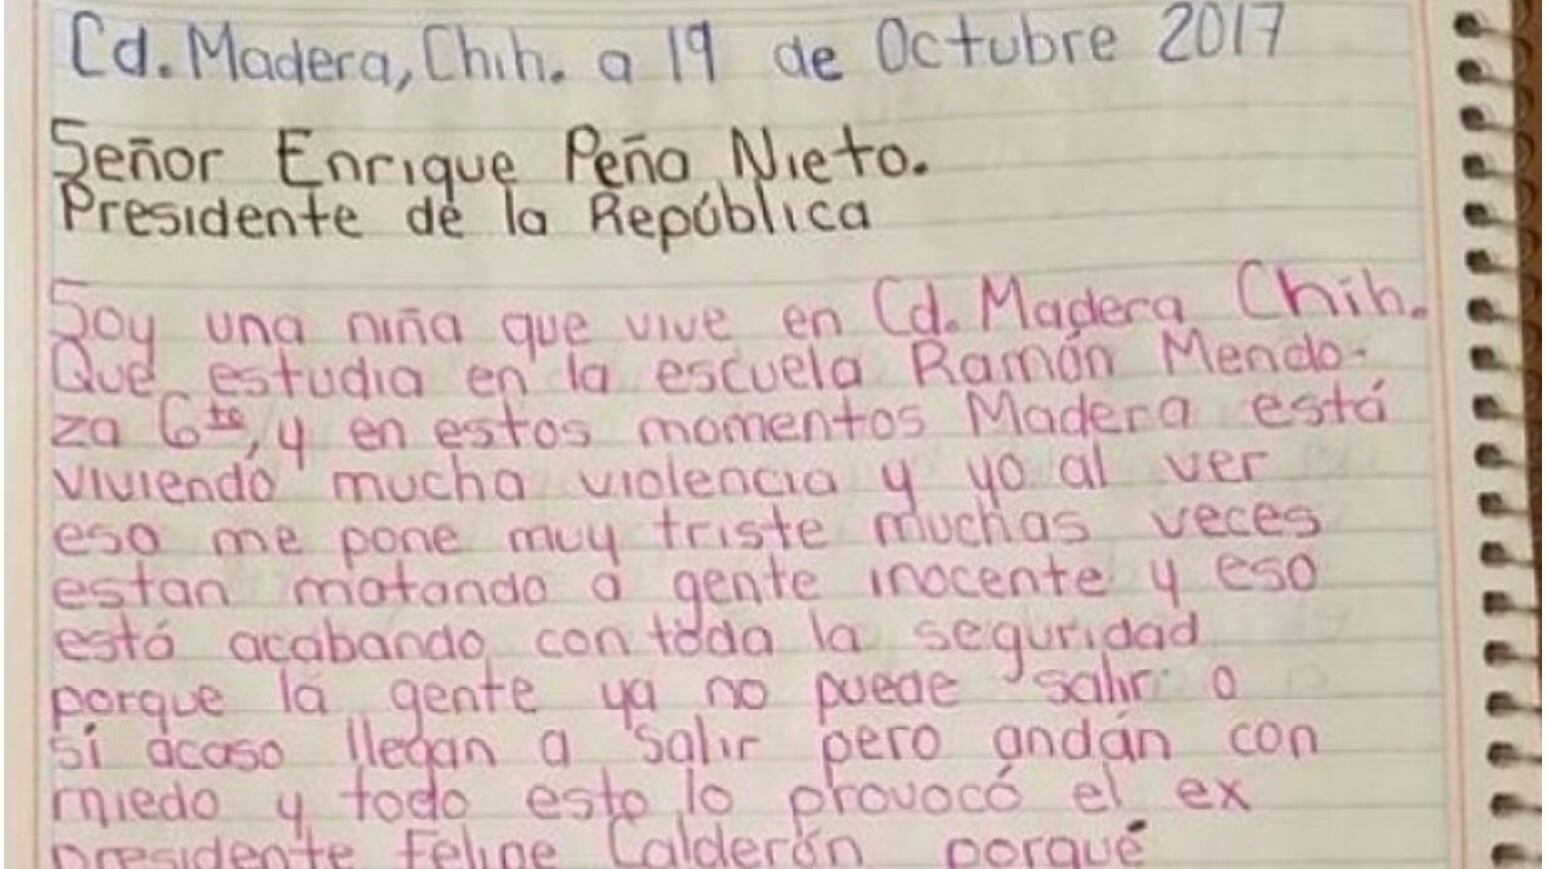 Cd. Madera, Chih. a 19 de Octubre 2017
Señor Enrique Peña Nieto.
Presidente de la República
Soy una niña que vive en Cd. Madera Chih.
Que estudia en la escuela Ramón Mendo-
za 6to, y en estos momentos Madera está
viviendo mucha violencia y yo al ver
eso me pone muy triste muchas veces
estan matando a gente inocente y eso
está acabando con toda la seguridad
porque la gente ya no puede salir o
si acaso llegan a salir pero andan con
miedo y todo esto lo provocó el ex
presidente Felipe Calderón porqué